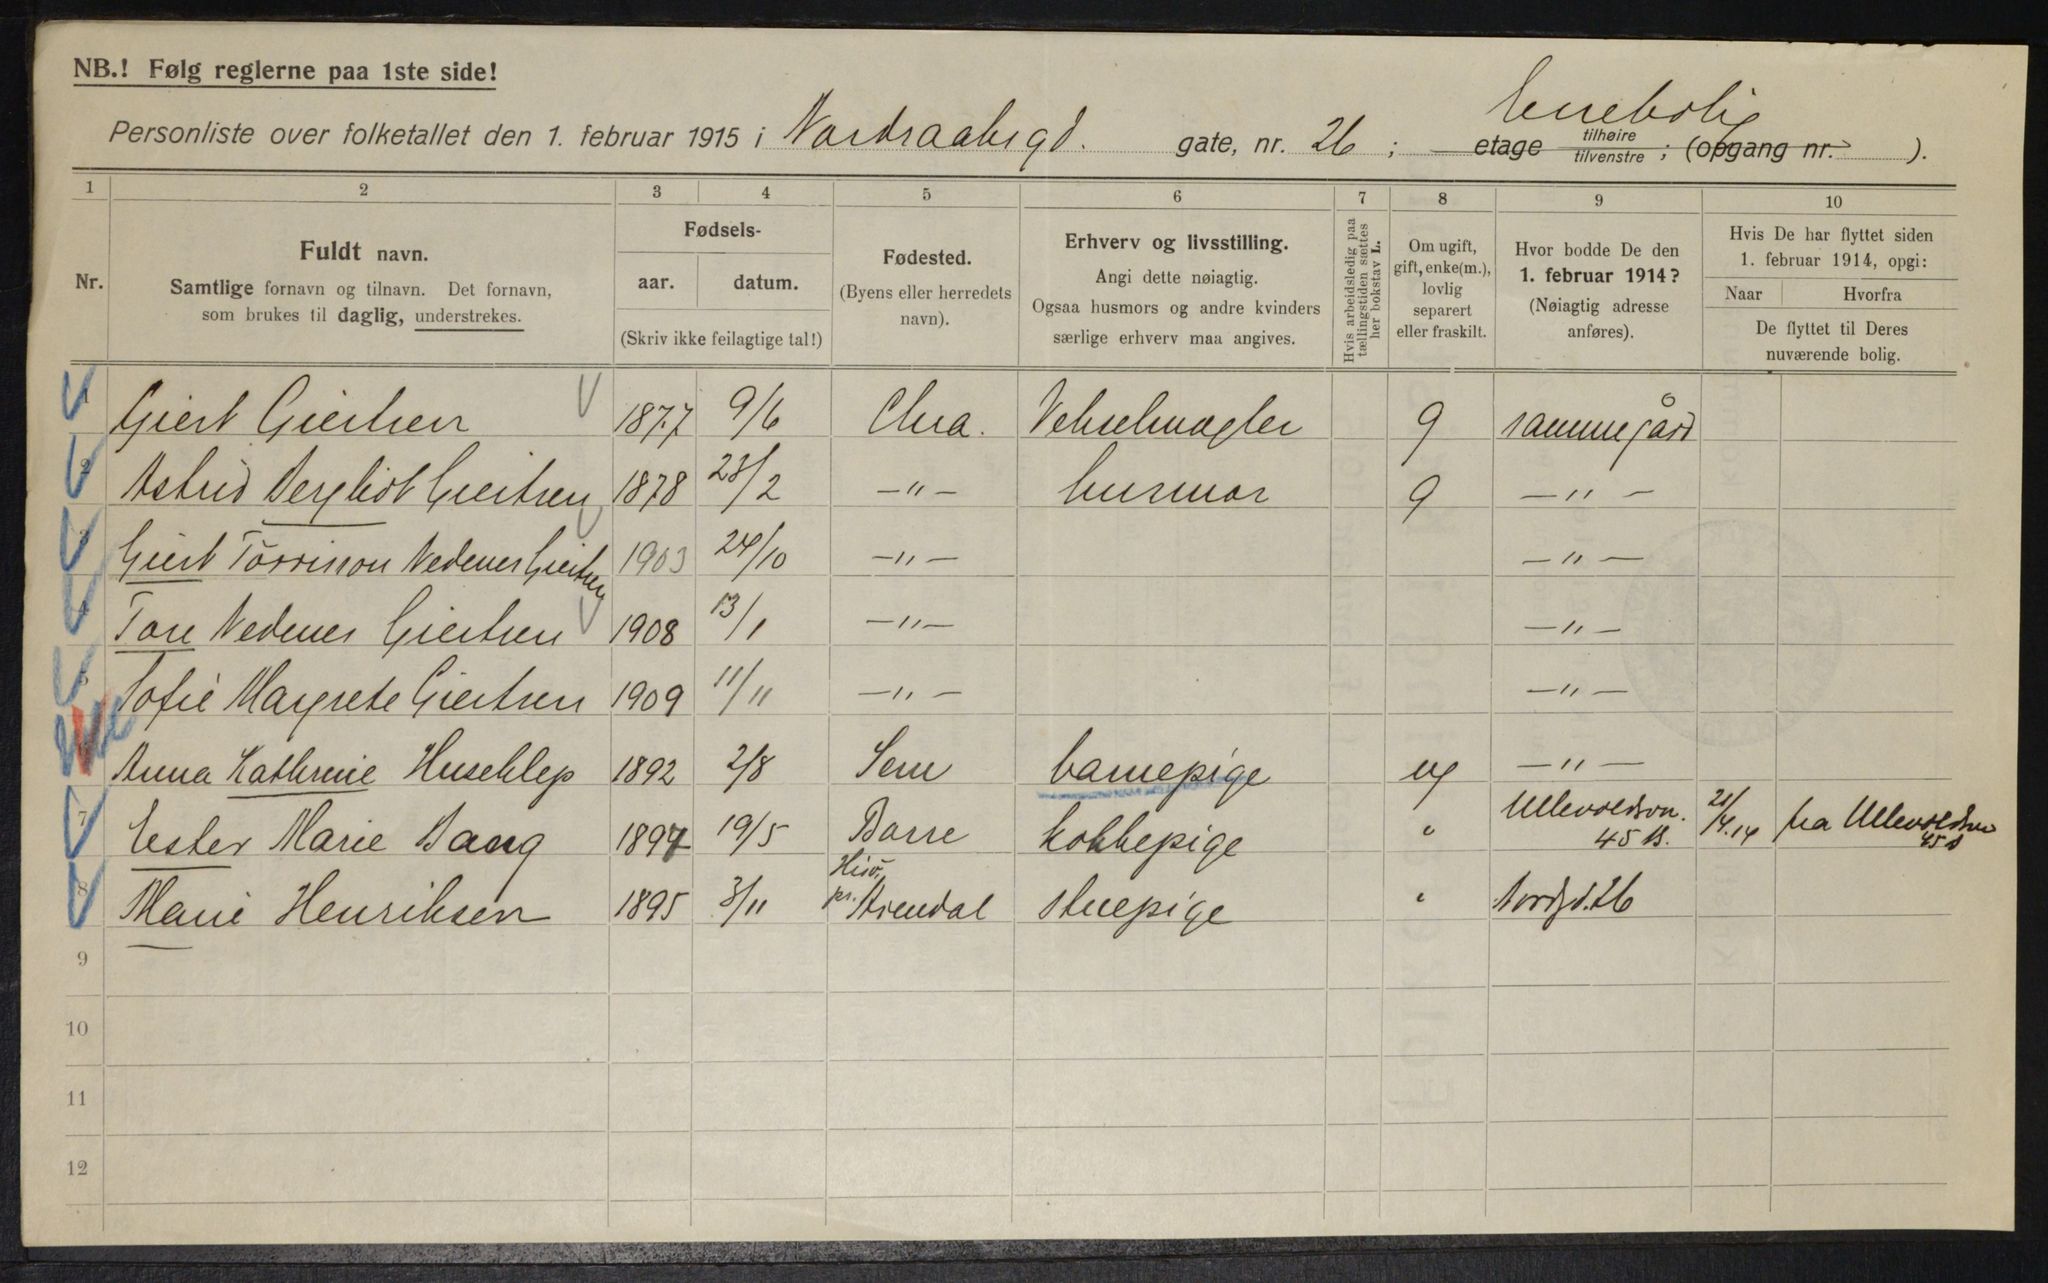 NB.! Følg reglerne paa 1ste side!
Enebolig
Personliste over folketallet den 1. februar 1915 i Nordraaksgd. gate, nr. 26 ; etage tilhøire tilvenstre ; (opgang nr. ).
1 2 3 4 5 6 7 8 9 10
Nr.
Fuldt navn.
Samtlige fornavn og tilnavn. Det fornavn,
som brukes til daglig, understrekes.
Fødsels-
aar. datum.
(Skriv ikke feilagtige tal!)
Fødested.
(Byens eller herredets
navn).
Erhverv og livsstilling.
Angi dette nøiagtig.
Ogsaa husmors og andre kvinders
særlige erhverv maa angives.
Hvis arbeidsledig paa
tællingstiden sættes
her bokstav L.
Om ugift,
gift, enke(m.),
lovlig
separert
eller fraskilt.
Hvor bodde De den
1. februar 1914?
(Nøiagtig adresse
anføres).
Hvis De har flyttet siden
1. februar 1914, opgi:
Naar Hvorfra
De flyttet til Deres
nuværende bolig.
1 Giert Giertsen 1877 9/6 Chra. Vekselmægler g samme gård
2 Astrid Bergliot Giertsen 1878 23/2 —"— husmor g —"—
3 Giert Törrisson Nedenes Giertsen 1903 24/10 —"— —"—
4 Tore Nedenes Giertsen 1908 13/1 —"— —"—
5 Sofie Margrete Giertsen 1909 11/11 —"— —"—
6 Anna Kathrine Huseklep 1892 2/8 Sem barnepige ug —"—
7 Ester Marie Bang 1897 19/5 Borre kokkepige " Ullevoldsvn. 45 B. 21/4.14 fra Ullevoldsvn 45 B
8 Marie Henriksen 1895 3/11 Hisö, pr. Arendal stuepige " Nordgd. 26
9
10
11
12